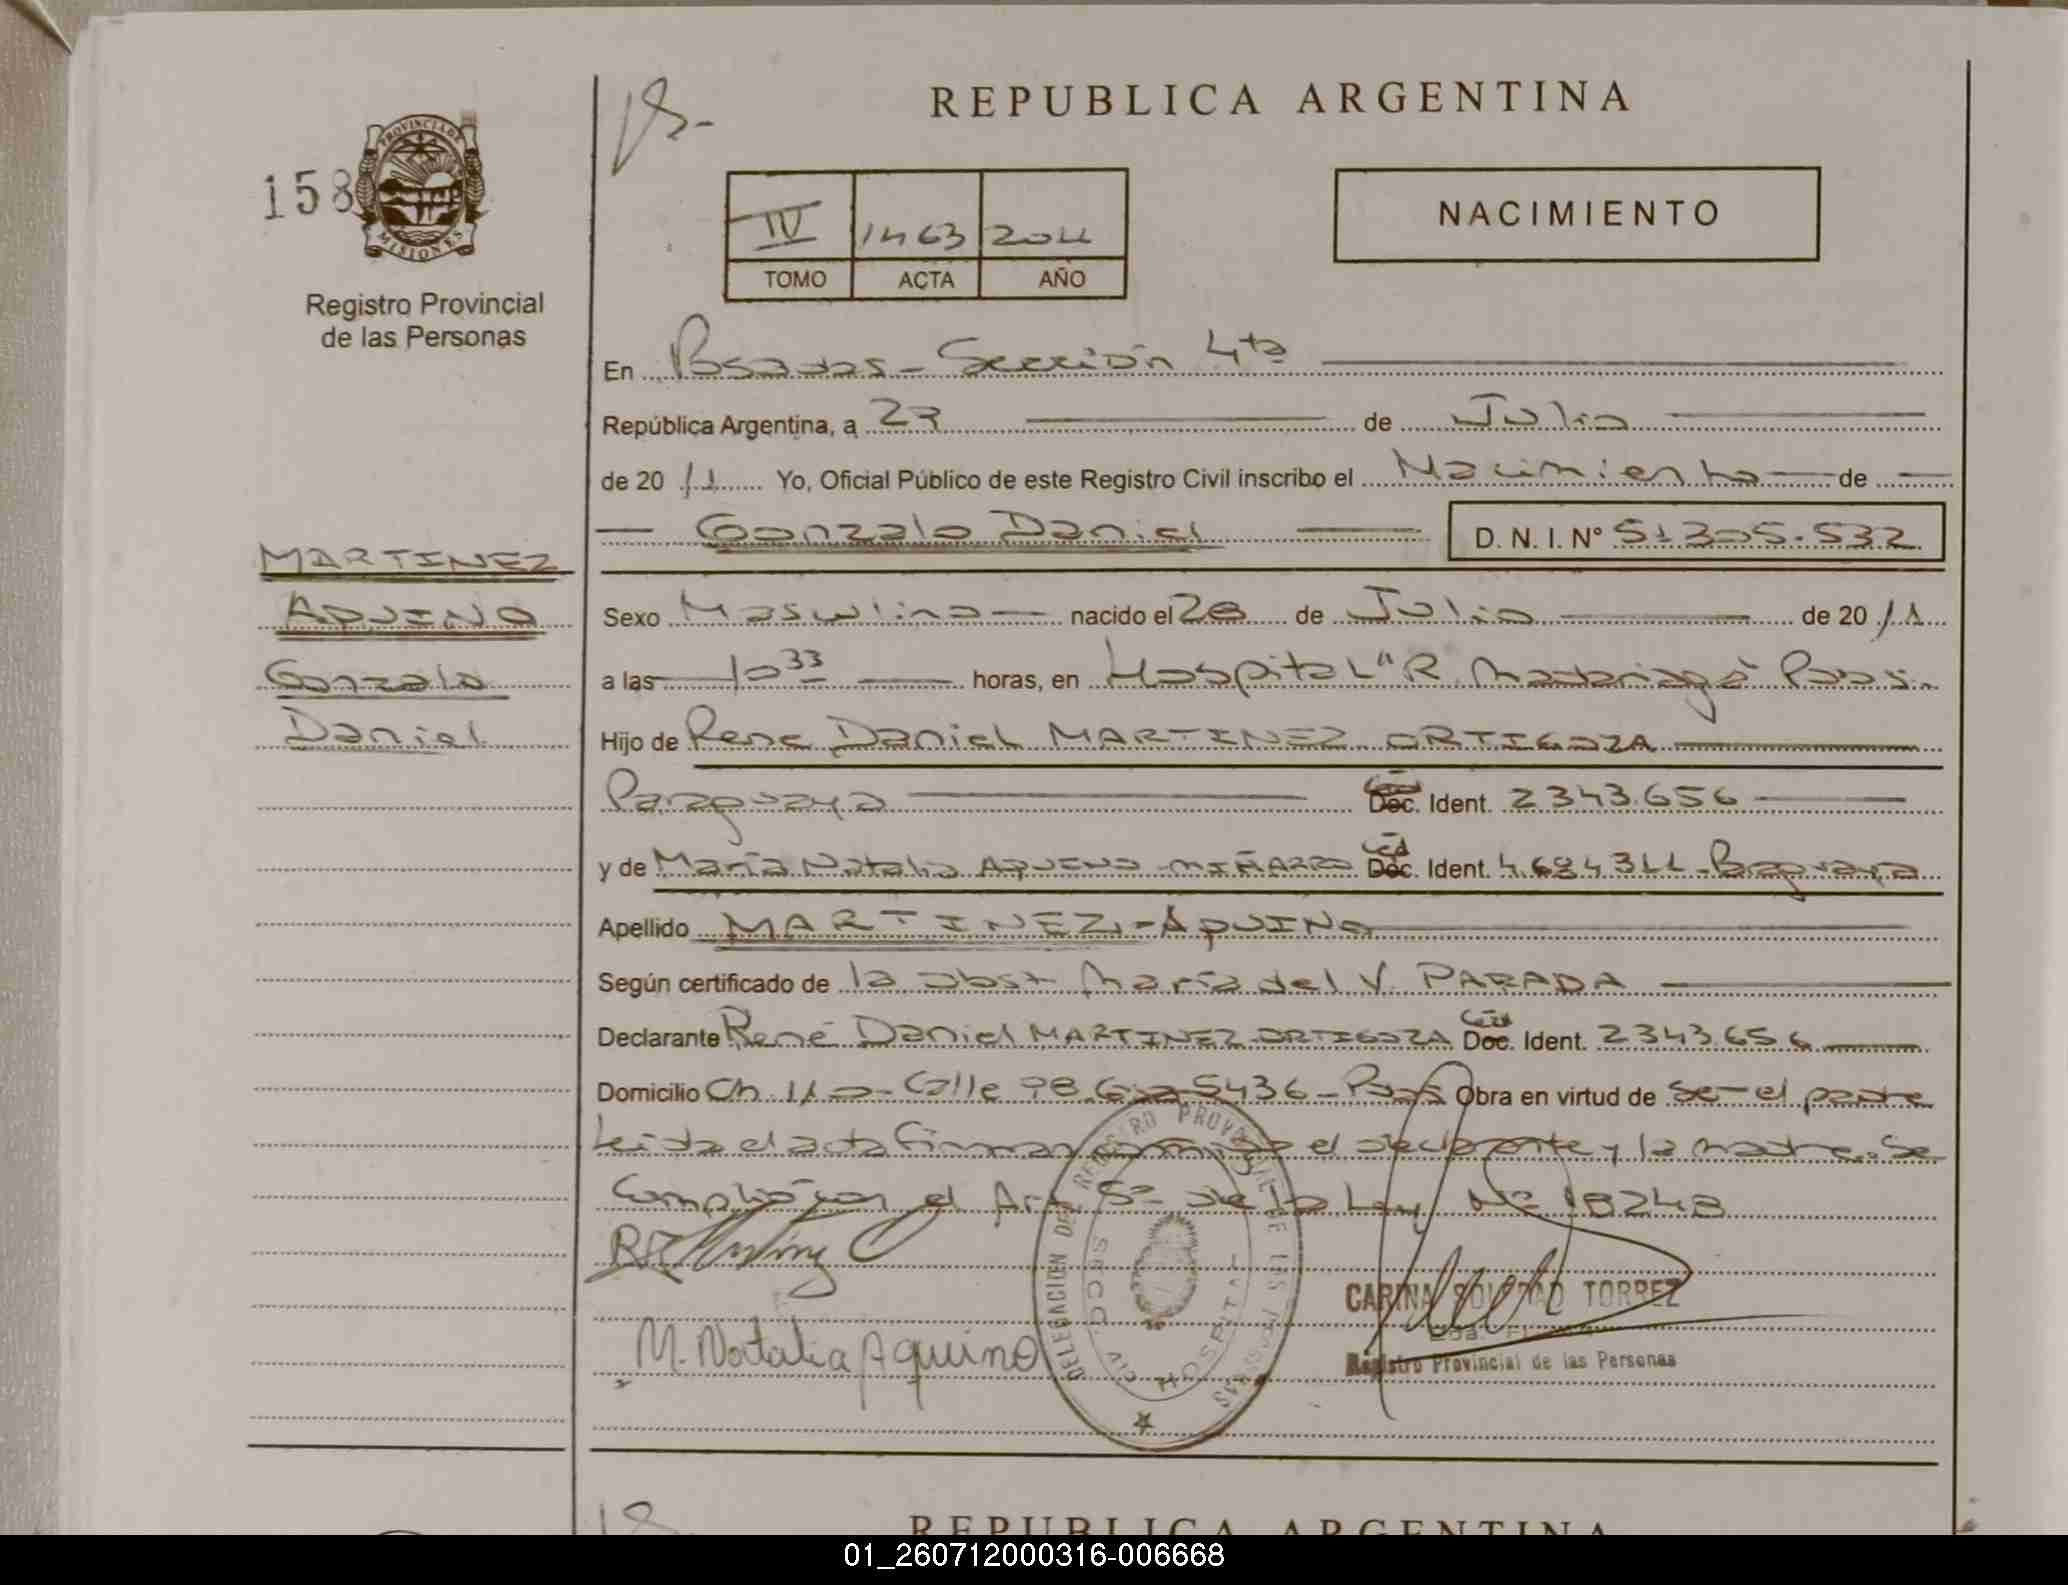 REPUBLICA ARGENTINA
158
PROVINCIA DE
MISIONES
Registro Provincial
de las Personas
IV 1463 2011
TOMO ACTA AÑO
NACIMIENTO
En Posadas - Sección 4ta
República Argentina, a 27 de Julio
de 20 11 Yo, Oficial Público de este Registro Civil inscribo el Nacimiento de
Gonzalo Daniel D. N. I. N° 51305.532
MARTINEZ
AQUINO
Gonzalo
Daniel
Sexo Masculino nacido el de Julio de 20 11
a las 10 33 horas, en Hospital "R. Madariaga" Pdas.
Hijo de Rene Daniel MARTINEZ ORTIGOZA
Paraguaya Doc. Ident. 2343.656
y de María Natalia AQUINO MIÑARRO Ced Doc. Ident. Paraguaya
Apellido MARTINEZ - AQUINO
Según certificado de la obst María del V. PARADA
Declarante René Daniel MARTINEZ ORTIGOZA Ced Doc. Ident. 2343.656
Domicilio Ch. Calle 98 5436 - Pdas Obra en virtud de ser el padre
Leida el acta firman conmigo el declarante y la madre. Se
el Art 5° de la Ley N° 18248
M. Natalia Aquino
DELEGACION DEL REGISTRO PROVINCIAL DE LAS PERSONAS
SECC. IV HOSPITAL
CARINA SOLEDAD TORREZ
Registro Provincial de las Personas
REPUBLICA ARGENTINA
01_260712000316-006668